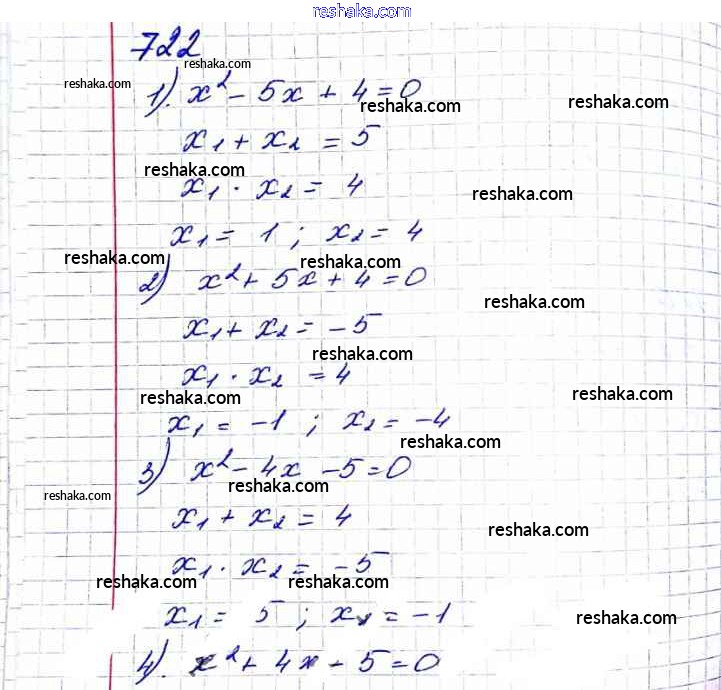 reshaka.com
722
reshaka.com reshaka.com
1). x² - 5x + 4 = 0
reshaka.com reshaka.com
x₁ + x₂ = 5
reshaka.com
x₁ · x₂ = 4
reshaka.com
x₁ = 1 ; x₂ = 4
reshaka.com reshaka.com
2) x² + 5x + 4 = 0
reshaka.com
x₁ + x₂ = -5
reshaka.com
x₁ · x₂ = 4
reshaka.com reshaka.com
x₁ = -1 ; x₂ = -4
reshaka.com
3) x² - 4x - 5 = 0
reshaka.com reshaka.com
x₁ + x₂ = 4
reshaka.com
x₁ · x₂ = -5
reshaka.com reshaka.com
x₁ = 5 ; x₂ = -1
reshaka.com
4). x² + 4x - 5 = 0